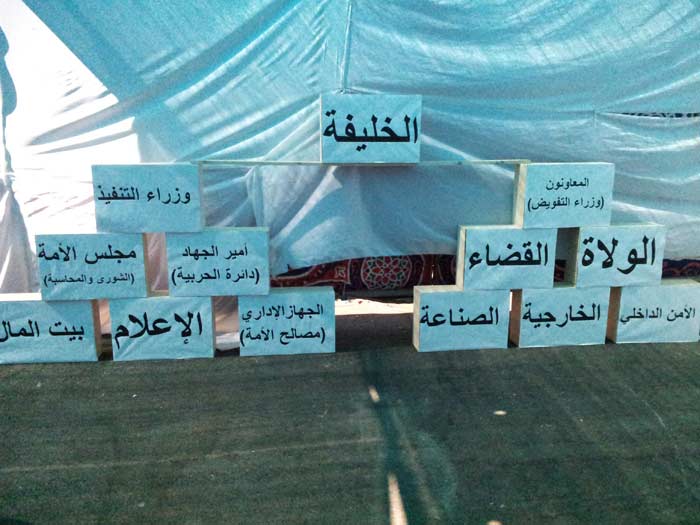 الخليفة
المعاونون
(وزراء التفويض)
وزراء التنفيذ
الولاة
القضاء
أمير الجهاد
(دائرة الحربية)
مجلس الأمة
(الشورى والمحاسبة)
الأمن الداخلي
الخارجية
الصناعة
الجهاز الإداري
(مصالح الأمة)
الإعلام
بيت المال